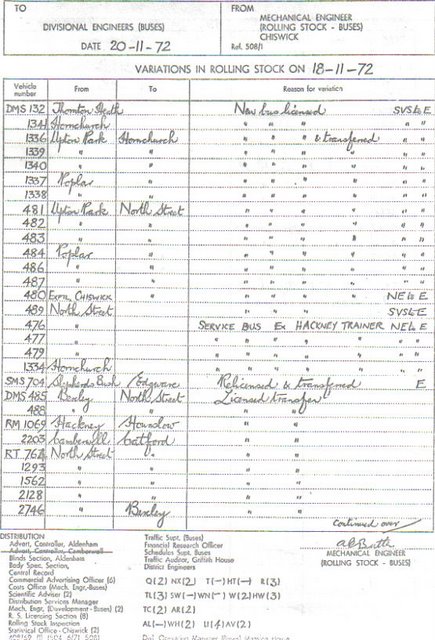 TO
DIVISIONAL ENGINEERS (BUSES)
DATE 20-11-72
FROM
MECHANICAL ENGINEER
(ROLLING STOCK - BUSES)
CHISWICK
Ref. 508/1
VARIATIONS IN ROLLING STOCK ON 18-11-72
Vehicle number From To Reason for variation
DMS 132 Thornton Heath New bus licensed SVSLE
1341 Hornchurch " " " " "
1336 Upton Park Hornchurch " " " & transferred " "
1339 " " " " " " " "
1340 " " " " " " " "
1337 Poplar " " " " " " "
1338 " " " " " " " "
481 Upton Park North Street " " " " " "
482 " " " " " " " "
483 " " " " " " " "
484 Poplar " " " " " " "
486 " " " " " " " "
487 " " " " " " " "
480 EXPTL CHISWICK " " " " NELE
489 North Street " " " SVSLE
476 " SERVICE BUS Ex HACKNEY TRAINER NELE
477 " " " " " " " "
479 " " " " " " " "
1334 Hornchurch " " " " " " "
SMS 704 Shepherds Bush Edgware Relicensed & transferred E
DMS 485 Bexley North Street Licensed transfer
488 " " " "
RM 1069 Hackney Hounslow " "
2203 Camberwell Catford " "
RT 762 North Street " " "
1293 " " " "
1562 " " " "
2128 " " " "
2746 " Bexley " "
Continued over
MECHANICAL ENGINEER
(ROLLING STOCK - BUSES)
DISTRIBUTION
Advert. Controller, Aldenham
Advert. Controller, Camberwell
Blinds Section, Aldenham
Body Spec. Section,
Central Record
Commercial Advertising Officer (6)
Costs Office (Mech. Engr.-Buses)
Scientific Adviser (2)
Distribution Services Manager
Mech. Engr. (Development - Buses) (2)
R. S. Licensing Section (8)
Rolling Stock Inspection
Statistical Office - Chiswick (2)
Traffic Supt. (Buses)
Financial Research Officer
Schedules Supt. Buses
Traffic Auditor, Griffith House
District Engineers
Q(2) NX(2) T(-) HT(-) R(3)
TL(3) SW(-) WN(-) W(2) HW(3)
TC(2) AR(2)
AL(-) WH(2) U(4) AV(2)